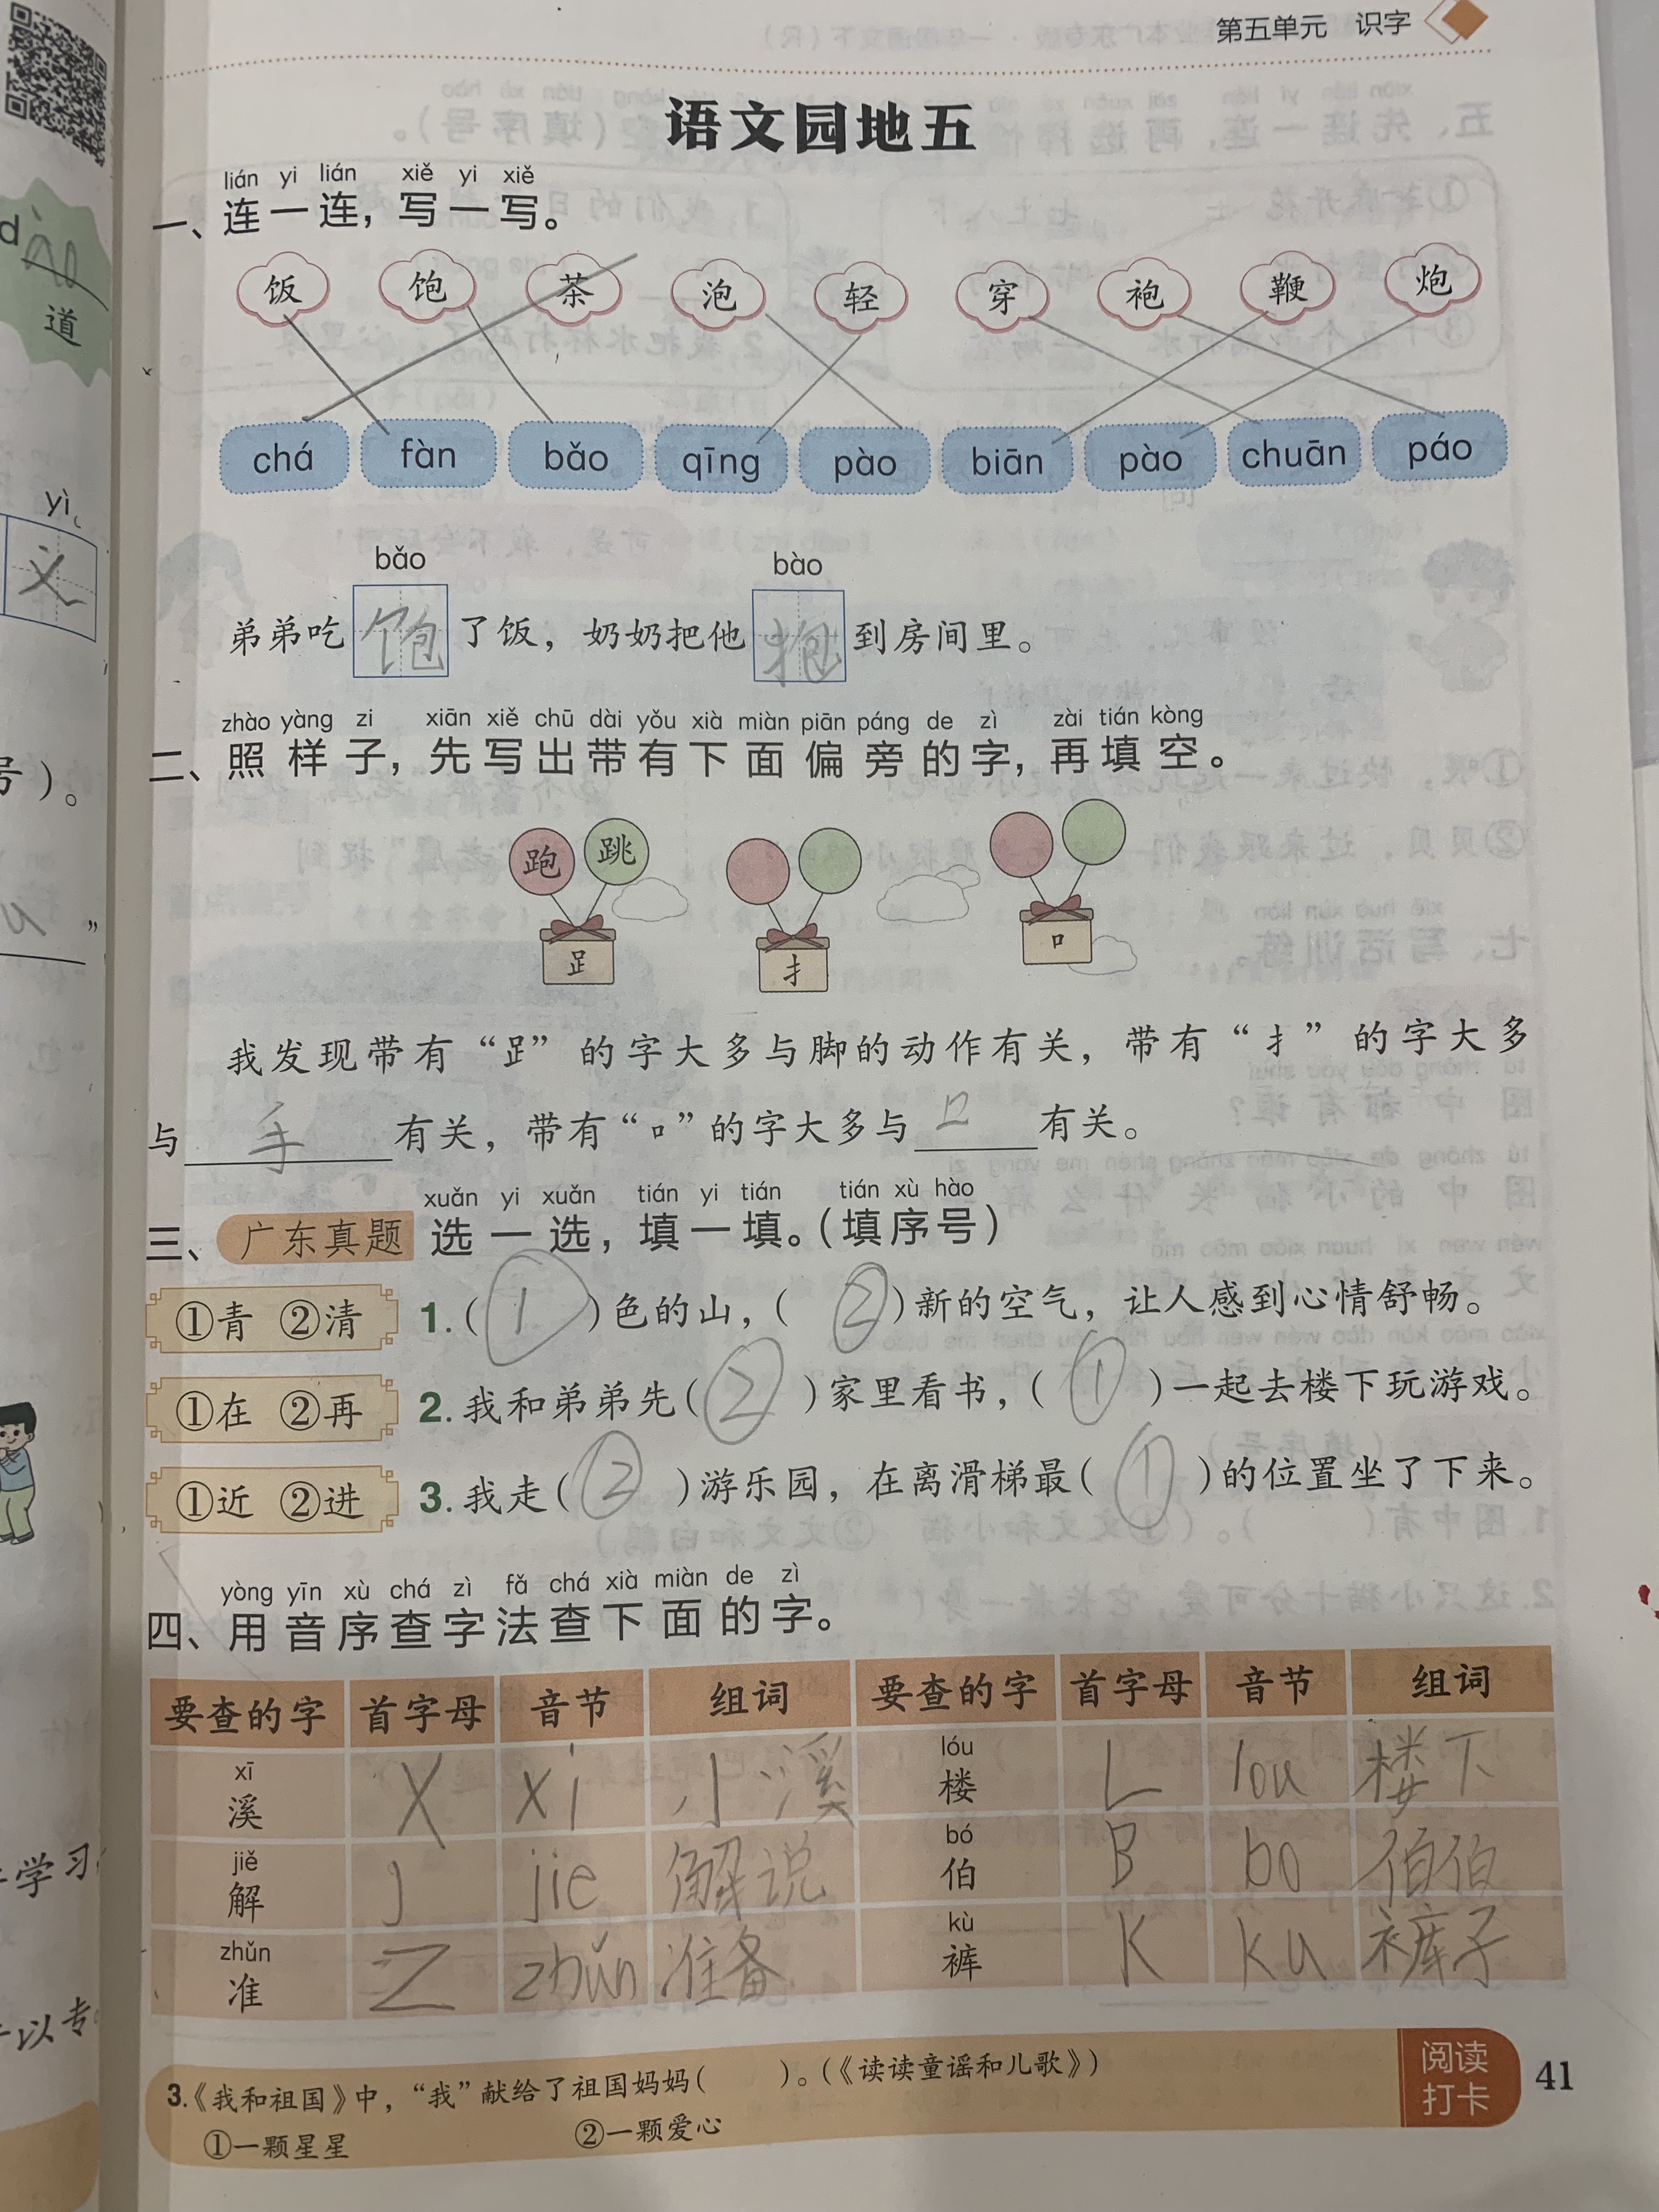 第五单元 识字
语文园地五
lián yi lián xiě yi xiě
一、连一连，写一写。
饭 饱 茶 泡 轻 穿 袍 鞭 炮
chá fàn bǎo qīng pào biān pào chuān páo
bǎo bào
弟弟吃饱了饭，奶奶把他抱到房间里。
zhào yàng zi xiān xiě chū dài yǒu xià miàn piān páng de zì zài tián kòng
二、照样子，先写出带有下面偏旁的字，再填空。
跑 跳
⻊ 扌 口
我发现带有“⻊”的字大多与脚的动作有关，带有“扌”的字大多
与手有关，带有“口”的字大多与口有关。
xuǎn yi xuǎn tián yi tián tián xù hào
三、广东真题 选一选，填一填。（填序号）
①青 ②清 1.（①）色的山，（②）新的空气，让人感到心情舒畅。
①在 ②再 2.我和弟弟先（②）家里看书，（①）一起去楼下玩游戏。
①近 ②进 3.我走（②）游乐园，在离滑梯最（①）的位置坐了下来。
yòng yīn xù chá zì fǎ chá xià miàn de zì
四、用音序查字法查下面的字。
要查的字 首字母 音节 组词 要查的字 首字母 音节 组词
xī lóu
溪 X xi 小溪 楼 L lou 楼下
jiě bó
解 J jie 解说 伯 B bo 伯伯
zhǔn kù
准 Z zhǔn 准备 裤 K ku 裤子
3.《我和祖国》中，“我”献给了祖国妈妈（ ）。（《读读童谣和儿歌》）
①一颗星星 ②一颗爱心
阅读
打卡
41
dào
道
yì
义
号）。
”
学习
以专